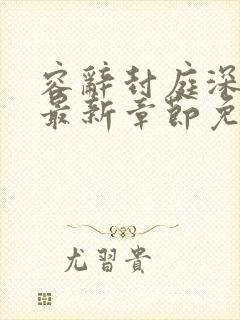 容辭封庭深
最新章節免
尤習貴